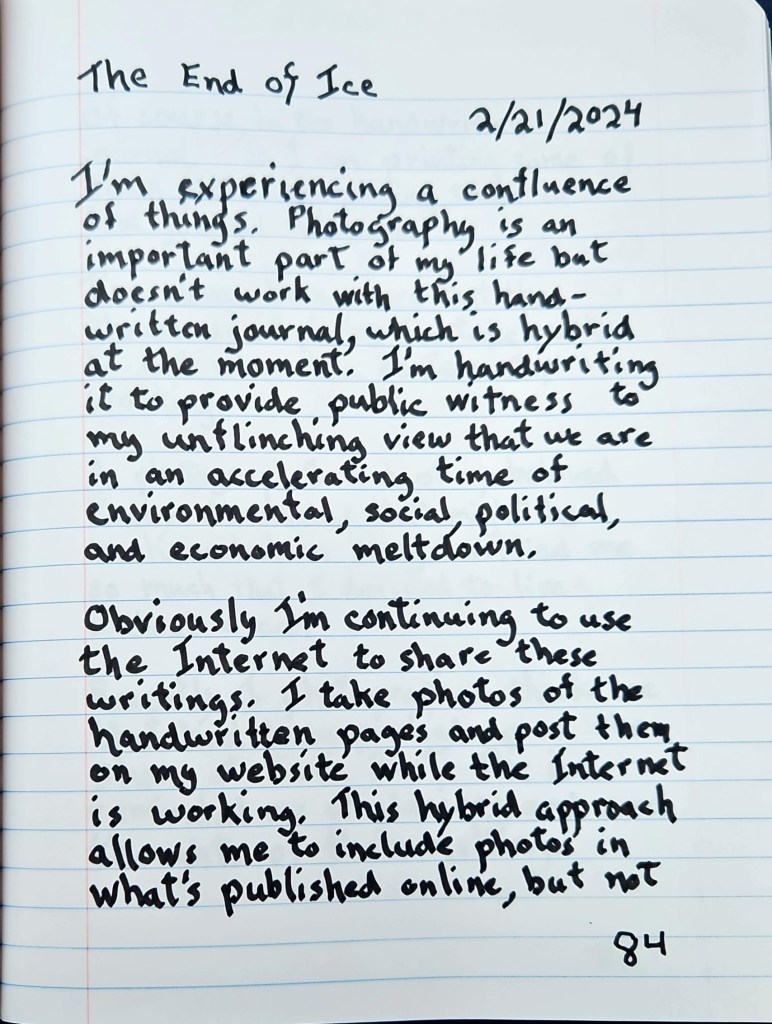 The End of Ice
2/21/2024
I'm experiencing a confluence
of things. Photography is an
important part of my life but
doesn't work with this hand-
written journal, which is hybrid
at the moment. I'm handwriting
it to provide public witness to
my unflinching view that we are
in an accelerating time of
environmental, social, political,
and economic meltdown.
Obviously I'm continuing to use
the Internet to share these
writings. I take photos of the
handwritten pages and post them
on my website while the Internet
is working. This hybrid approach
allows me to include photos in
what's published online, but not
84